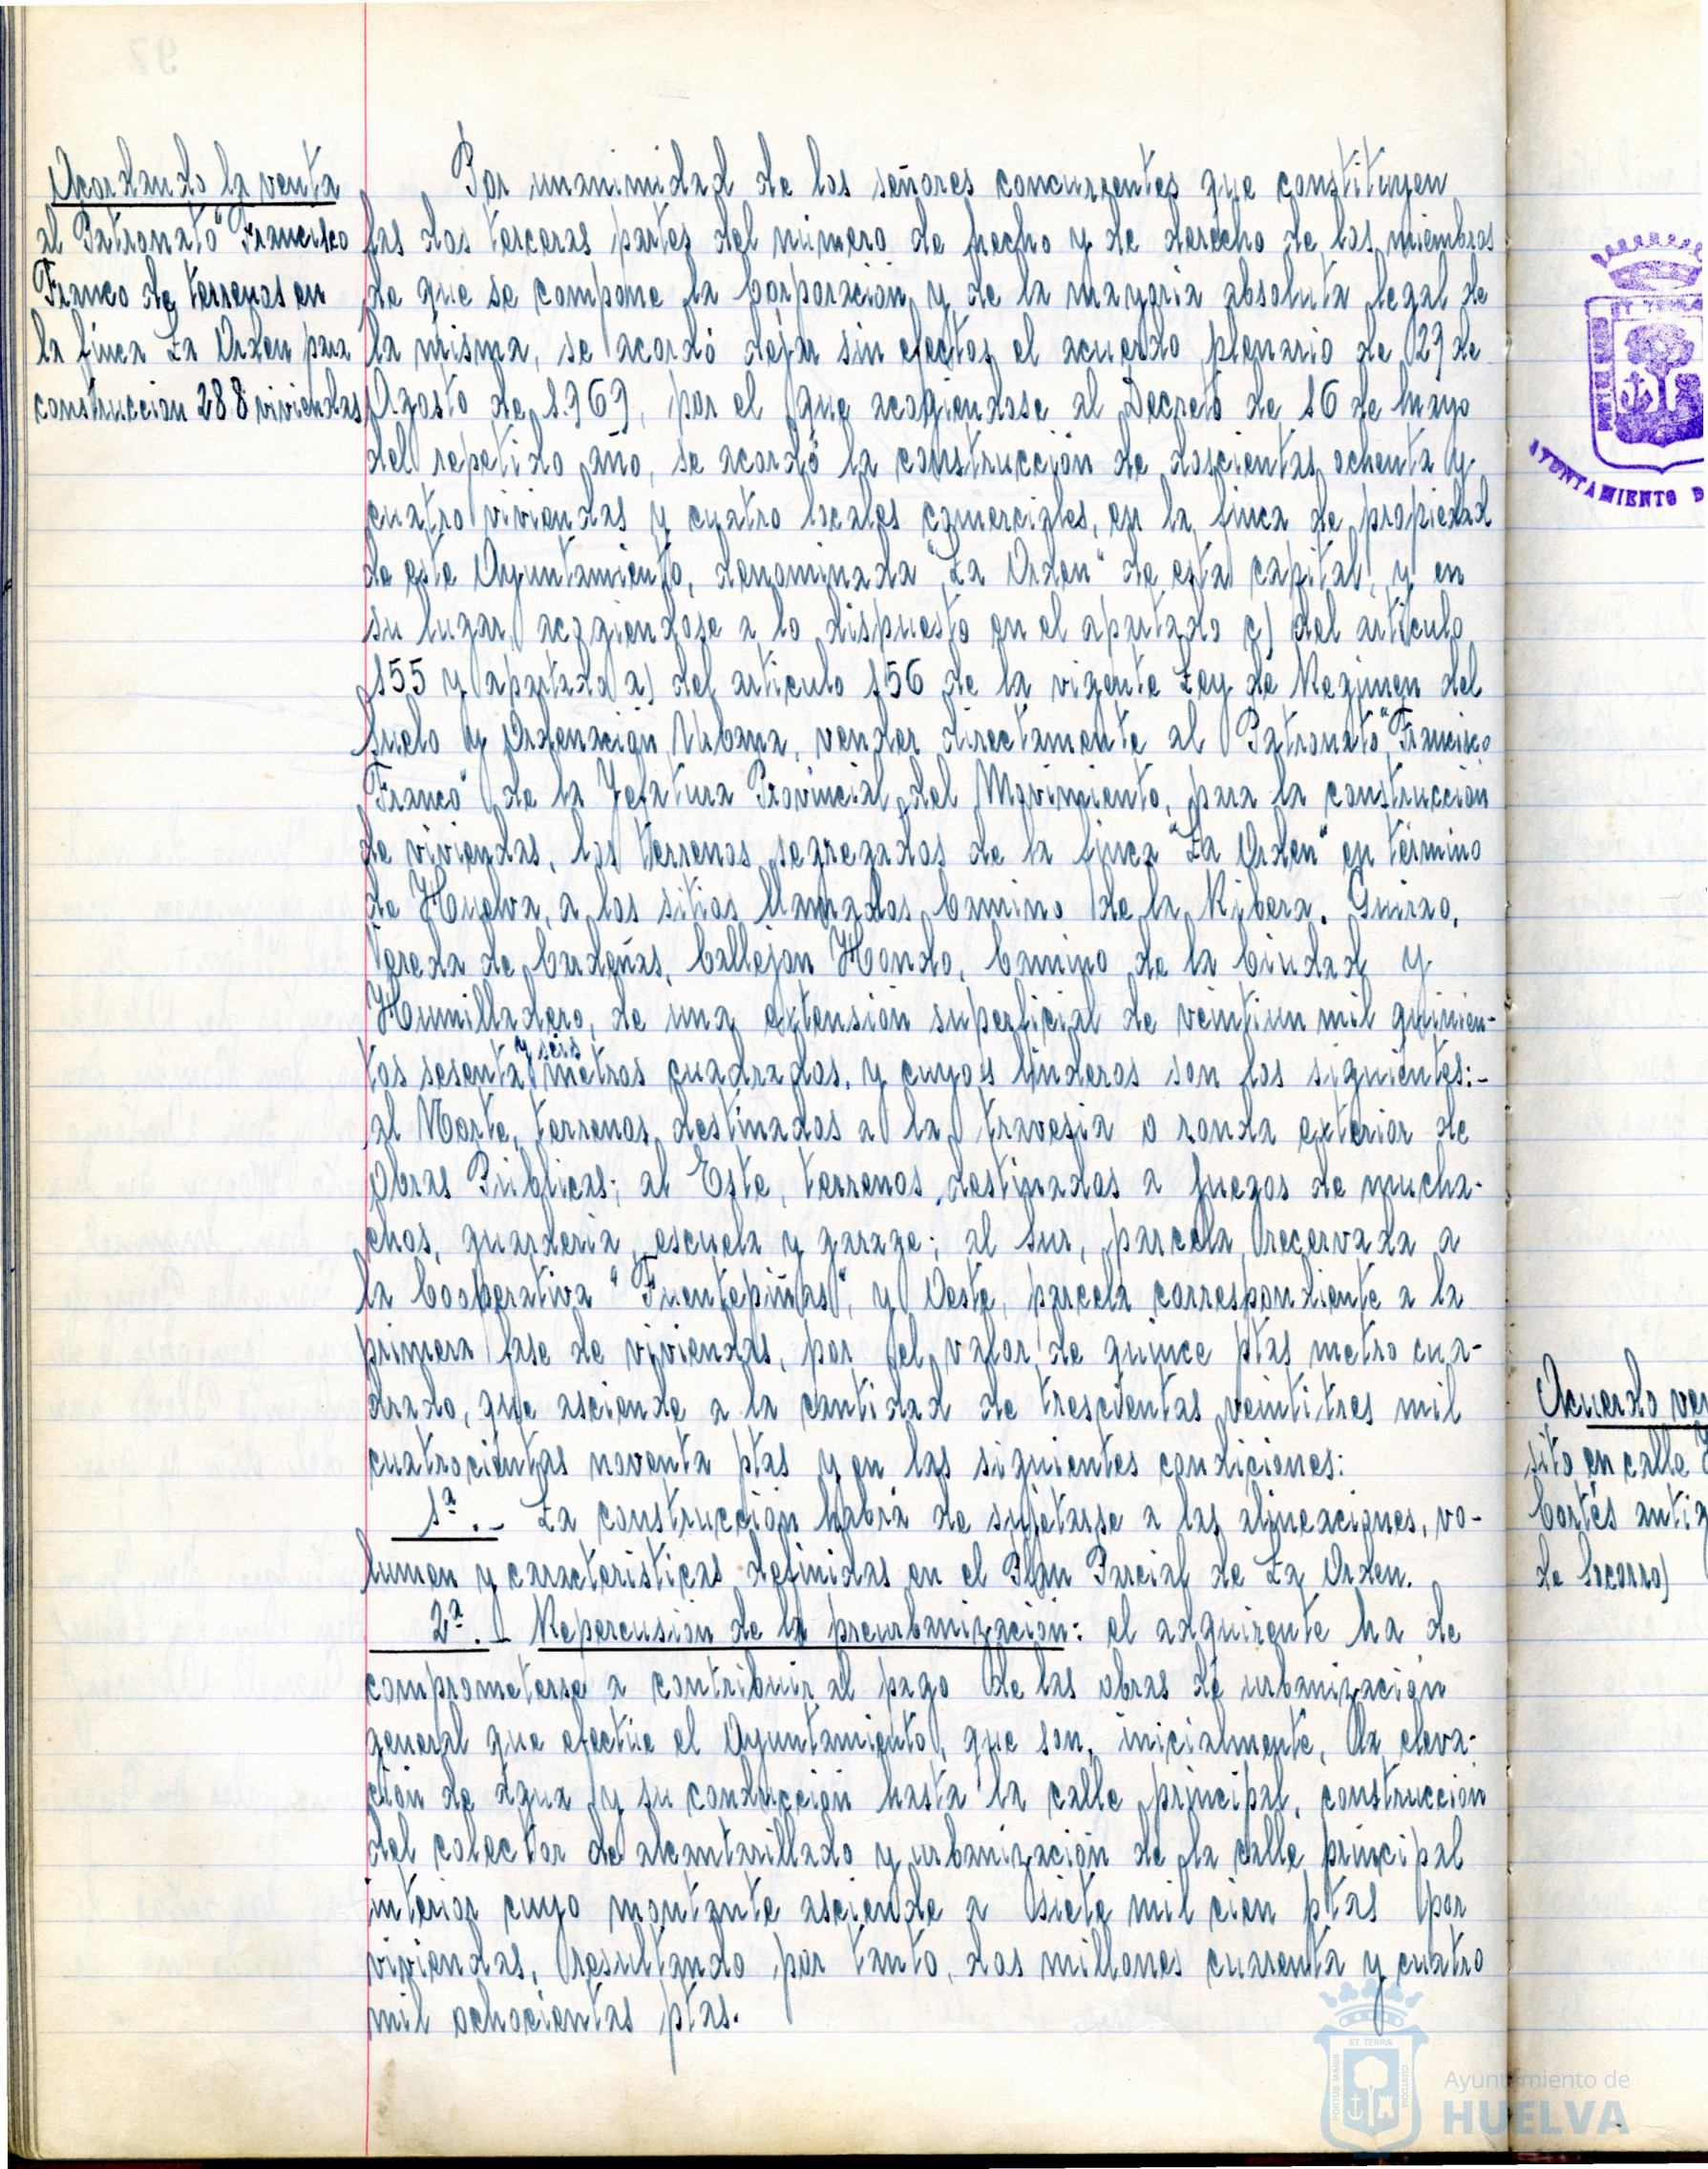 Acordando la venta
al Patronato "Francisco
Franco de terrenos en
la finca La Orden para
construccion 288 viviendas
Por unanimidad de los señores concurrentes que constituyen
las dos terceras partes del número de hecho y de derecho de los miembros
de que se compone la Corporación y de la mayoria absoluta legal de
la misma, se acordó dejar sin efectos el acuerdo plenario de 29 de
Agosto de 1.969, por el que acogiendose al Decreto de 16 de Mayo
del repetido año, se acordó la construcción de doscientas ochenta y
cuatro viviendas y cuatro locales comerciales, en la finca de propiedad
de este Ayuntamiento, denominada "La Orden" de esta capital, y en
su lugar, acogiendose a lo dispuesto en el apartado c) del articulo
155 y apartado a) del articulo 156 de la vigente Ley de Regimen del
Suelo y Ordenación Urbana, vender directamente al Patronato "Francisco
Franco" de la Jefatura Provincial del Movimiento, para la construcción
de viviendas, los terrenos segregados de la finca "La Orden" en término
de Huelva, a los sitios llamados Camino de la Ribera. Guirao,
Vereda de Cardeñas, Callejon Hondo, Camino de la Ciudad y
Humilladero, de una extensión superficial de veintiun mil quinien-
tos sesenta y seis metros cuadrados, y cuyos linderos son los siguientes:-
al Norte, terrenos destinados a la travesia o ronda exterior de
Obras Públicas; al Este, terrenos destinados a juegos de mucha-
chos, guarderia, escuela y garage; al Sur, parcela recervada a
la Cooperativa "Fuentepiñas", y Oeste, parcela correspondiente a la
primera fase de viviendas, por el valor de quince ptas metro cua-
drado, que asciende a la cantidad de trescientas veintitres mil
cuatrocientas noventa ptas y en las siguientes condiciones:
1ª.- La construcción habrá de sujetarse a las alineaciones, vo-
lumen y caracteristicas definidas en el Plan Parcial de La Orden.
2ª.- Repercusión de la preurbanización: el adquirente ha de
comprometerse a contribuir al pago de las obras de urbanización
general que efectúe el Ayuntamiento, que son, inicialmente, la eleva-
ción de agua y su conducción hasta la calle principal, construcción
del colector de alcantarillado y urbanización de la calle principal
interior cuyo montante asciende a siete mil cien ptas por
viviendas, resultando por tanto, dos millones cuarenta y cuatro
mil ochocientas ptas.
AYUNTAMIENTO D
Acuerdo ven
sito en calle
Cortés antig
de Socorro)
ET TERRÆ
PORTUS MARIS
CUSTODIA
Ayuntamiento de
HUELVA